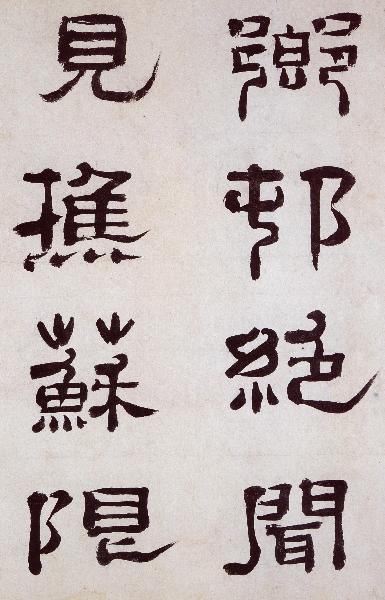 鄉邨絕聞
見樵蘇限